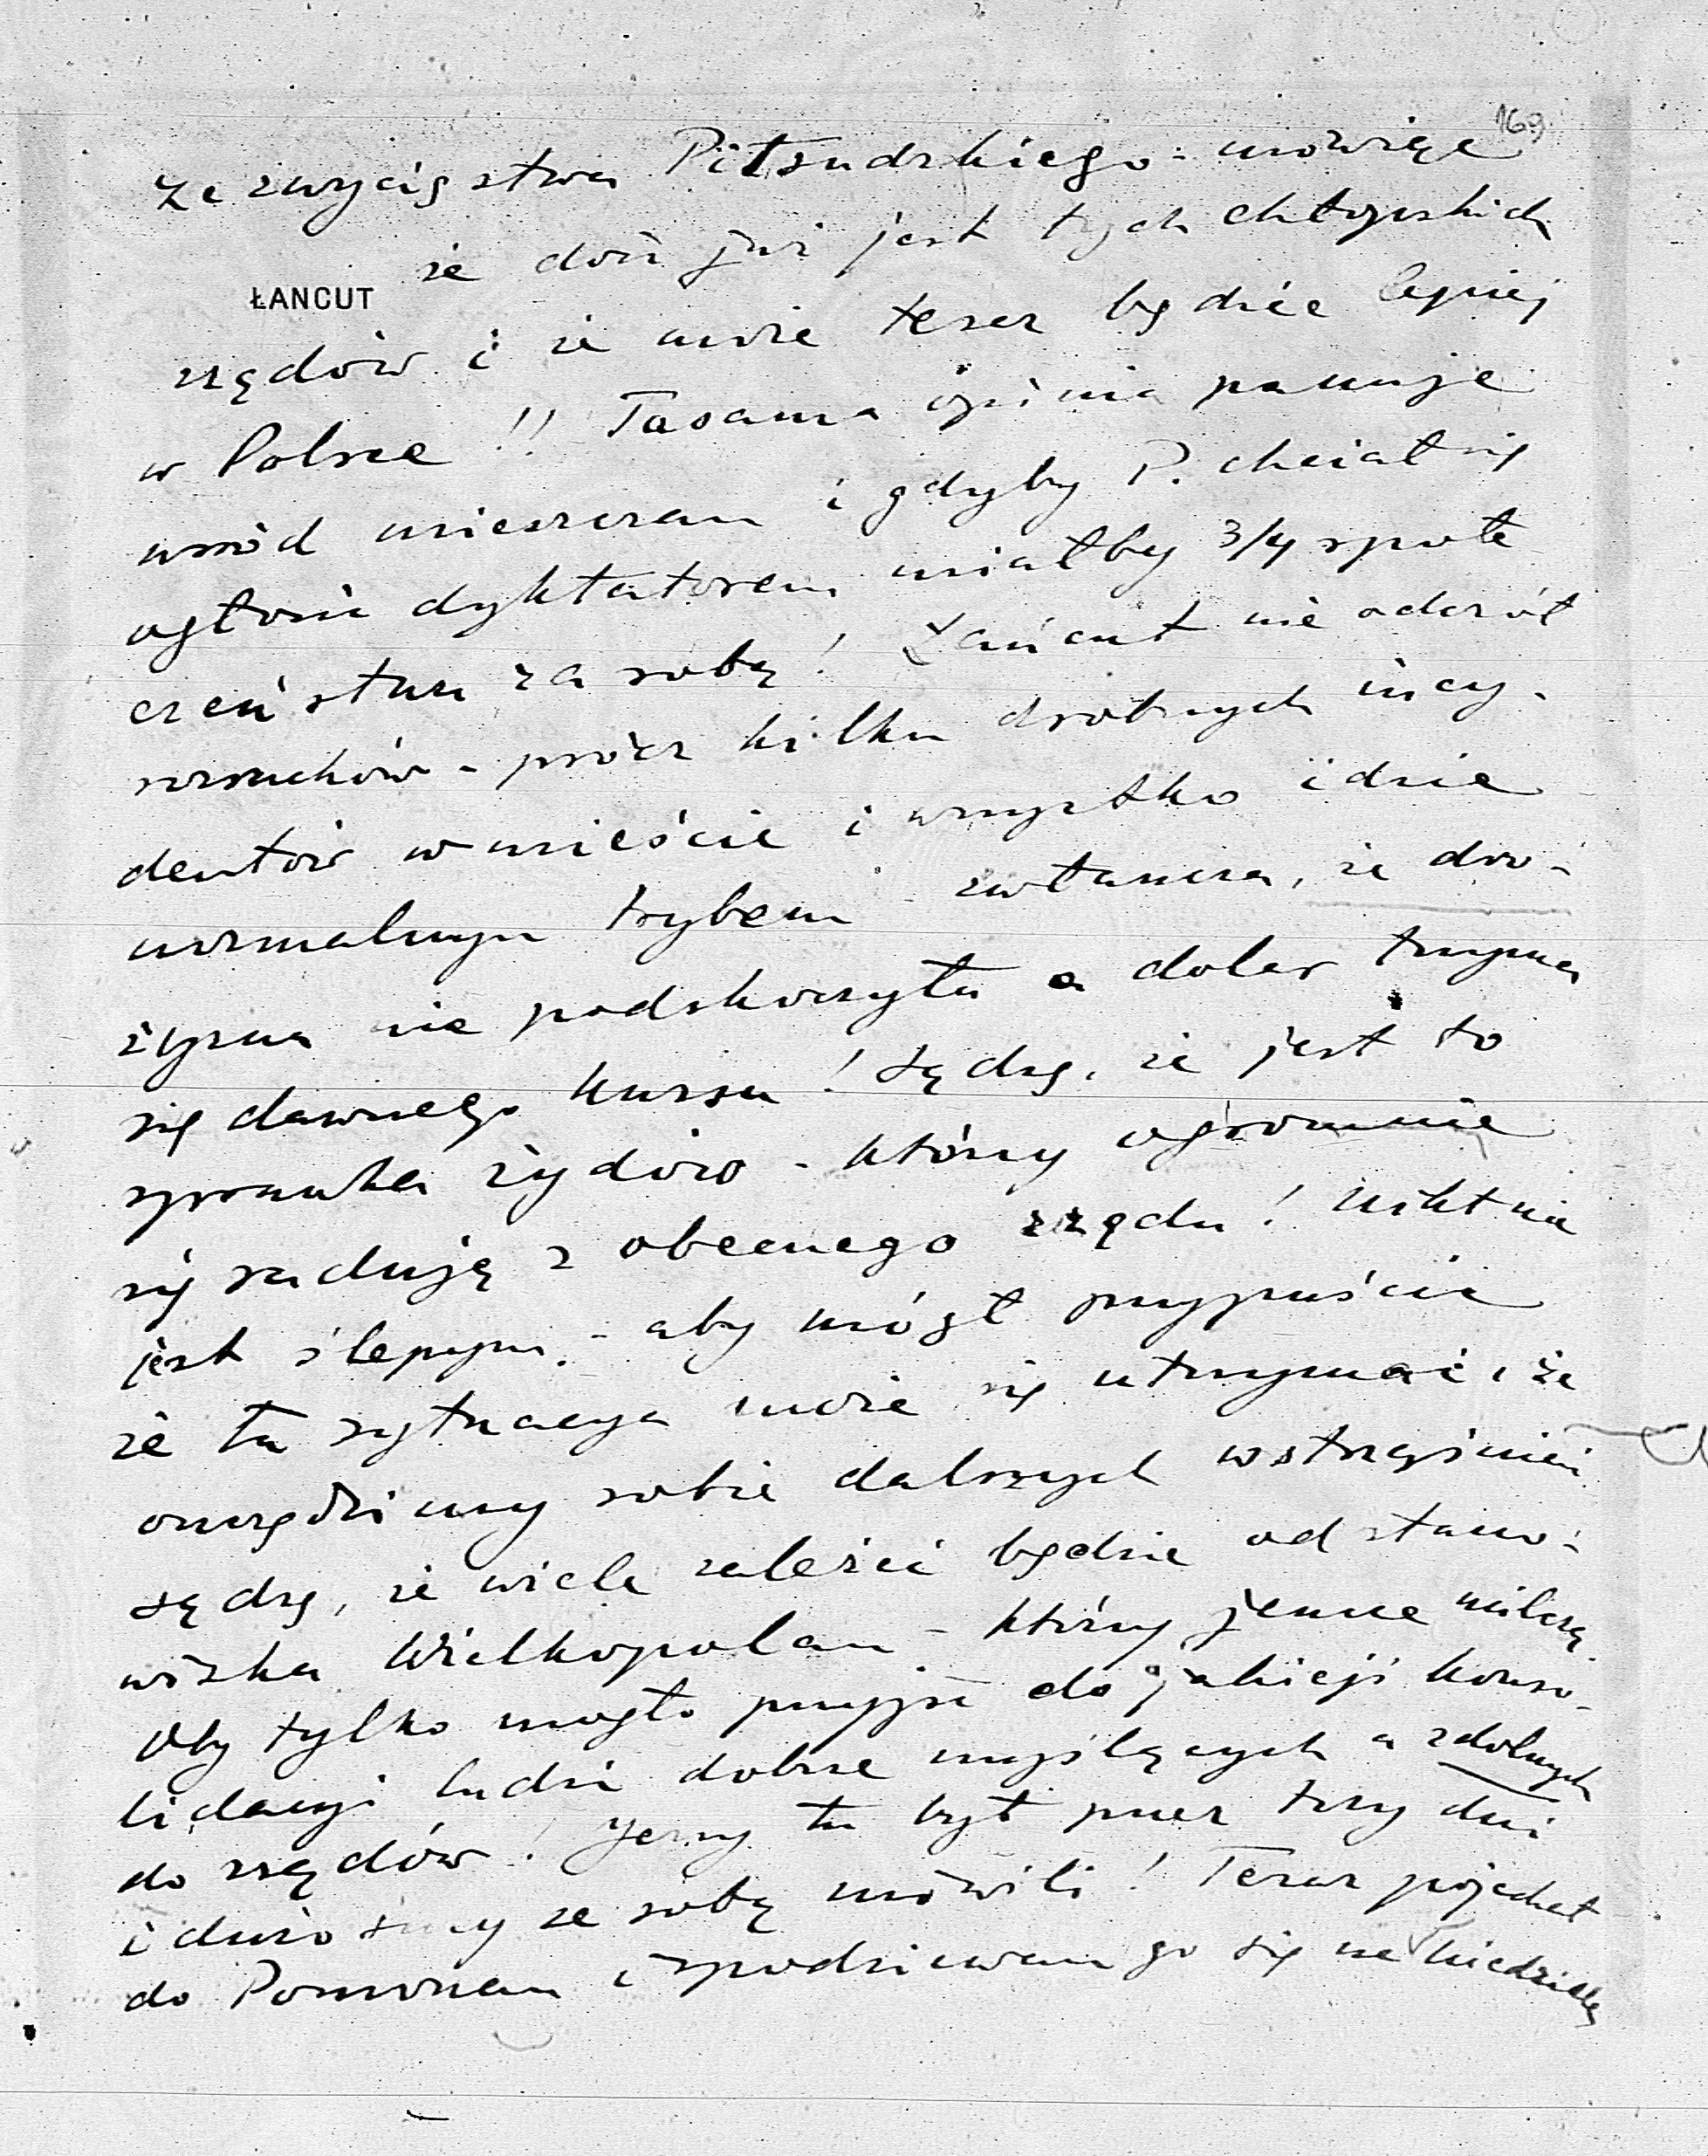 169
ze zwycięstwa Piłsudskiego - mówiąc
że dość już jest tych chłopskich
ŁANCUT
rządów i że może teraz będzie lepiej
w Polsce !! Tasama opinia panuje
wśród mieszczan i gdyby P. chciał się
ogłosić dyktatorem miałby 3/4 społe
czeństwa za sobą! Łańcut nie odczół
rozruchów - prócz kilku drobnych incy-
dentów w mieście i wszystko idzie
normalnym trybem zwłaszcza, że dro-
żyzna nie podskoczyła a dolar trzyma
się dawnego kursu! Sądzę, że jest to
sprawka żydów - którzy ogromnie
się radują z obecnego rządu! Nikt nie
jest ślepym - aby mógł przypuścić
że ta sytuacya może się utrzymać i że
oszczędzimy sobie dalszych wstrząśnień
sądzę, że wiele zależeć będzie od stano-
wiska Wielkopolan - którzy jeszcze milczą
Oby tylko mogło przyjść do jakiejś konso-
lidacyi ludzi dobrze myślących a zdolnych
do rządów! Jerzy tu był przez trzy dni
i dużo śmy ze sobą mówili! Teraz pojechał
do Pomorzan i spodziewam go się na niedzielę